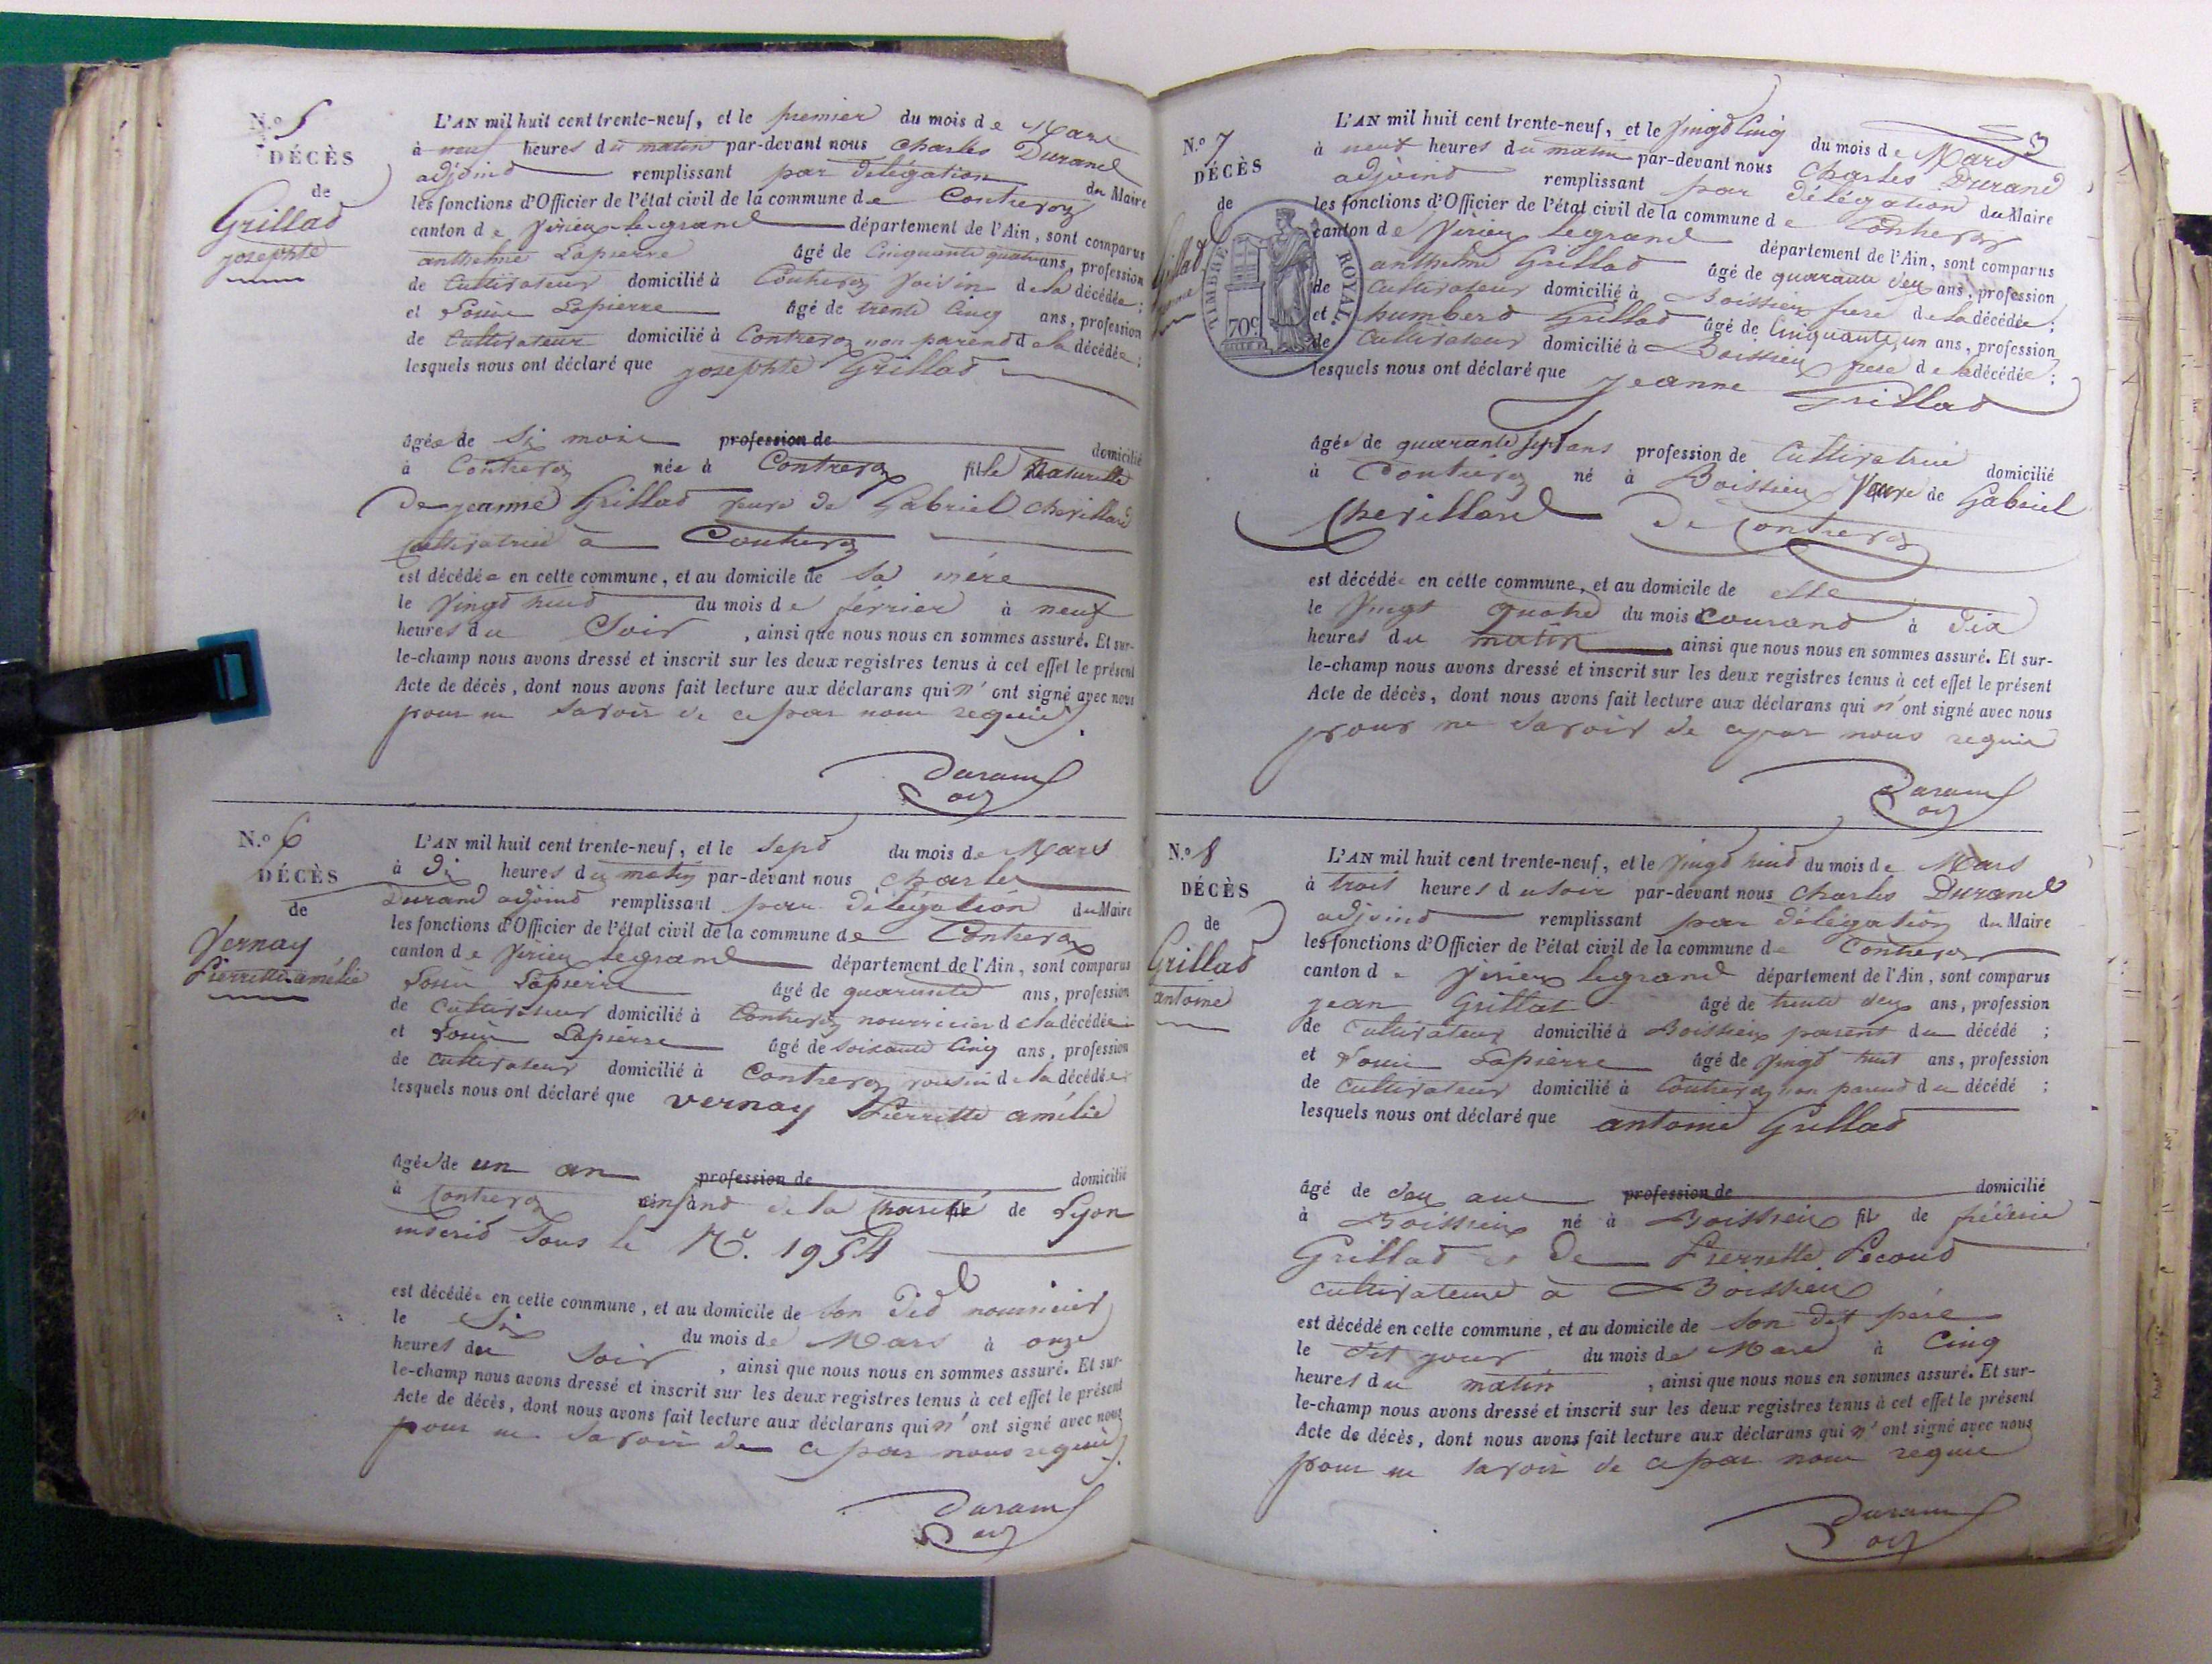 N.º 5
DÉCÈS
de
Grillad
josephte
L'AN mil huit cent trente-neuf, et le premier du mois de Mars
à neuf heures du matin par-devant nous Charles Durand
adjoind remplissant par délégation du Maire
les fonctions d'Officier de l'état civil de la commune de Contrevoz
canton de Virieu-le-grand département de l'Ain, sont comparus
anthelme Lapierre âgé de Cinquante quatre ans, profession
de Cultivateur domicilié à Contrevoz voisin de la décédée ;
et Louis Lapierre âgé de trente Cinq ans, profession
de Cultivateur domicilié à Contrevoz non parend de la décédée ;
lesquels nous ont déclaré que josephte Grillad
âgée de Six mois profession de domicilié
à Contrevoz née à Contrevoz fille Naturelle
de jeanne Grillad veuve de Gabriel Chevilland
Cultivatrice à Contrevoz
est décédée en cette commune, et au domicile de sa mére
le Vingd huid du mois de février à neuf
heures du Soir , ainsi que nous nous en sommes assuré. Et sur-
le-champ nous avons dressé et inscrit sur les deux registres tenus à cet effet le présent
Acte de décès, dont nous avons fait lecture aux déclarans qui n'ont signé avec nous
pour ne savoir de ce par nous requis.
Durand
adj
N.º 6
DÉCÈS
de
Vernay
Pierrette amélie
L'AN mil huit cent trente-neuf, et le Sepd du mois de Mars
à Dix heures du matin par-devant nous Charles
Durand adjoind remplissant par délégation du Maire
les fonctions d'Officier de l'état civil de la commune de Contrevoz
canton de Virieu legrand département de l'Ain, sont comparus
Louis Lapierre âgé de quarante ans, profession
de Cultivateur domicilié à Contrevoz nourricier de la décédée
et Louis Lapierre âgé de Soixante Cinq ans, profession
de Cultivateur domicilié à Contrevoz voisin de la décédée
lesquels nous ont déclaré que vernay Pierrette amélie
âgée de un an profession de domicilié
à Contrevoz enfand de la Charité de Lyon
inscrid Sous le Nº. 1954
est décédée en cette commune, et au domicile de Son Did nourricier
le Six du mois de Mars à onze
heures du Soir , ainsi que nous nous en sommes assuré. Et sur-
le-champ nous avons dressé et inscrit sur les deux registres tenus à cet effet le présent
Acte de décès, dont nous avons fait lecture aux déclarans qui n'ont signé avec nous
pour ne savoir de ce par nous requis.
Durand
adj
3
N.º 7
DÉCÈS
de
Grillad
jeanne
TIMBRE ROYAL
70 c.
L'AN mil huit cent trente-neuf, et le Vingd Cinq du mois de Mars
à neuf heures du matin par-devant nous Charles Durand
adjoind remplissant par délégation du Maire
les fonctions d'Officier de l'état civil de la commune de Contrevoz
canton de Virieu legrand département de l'Ain, sont comparus
anthelme Grillad âgé de quarante deux ans, profession
de Cultivateur domicilié à Boissieu frere de la décédée ;
et humberd Grillad âgé de Cinquante un ans, profession
de Cultivateur domicilié à Boissieu frere de la décédée ;
lesquels nous ont déclaré que jeanne Grillad
âgée de quarante sept ans profession de Cultivatrice domicilié
à Contrevoz né à Boissieu Veuve de Gabriel
Chevilland de Contrevoz
est décédée en cette commune, et au domicile de elle
le Vingt quatre du mois Courand à Dix
heures du matin ainsi que nous nous en sommes assuré. Et sur-
le-champ nous avons dressé et inscrit sur les deux registres tenus à cet effet le présent
Acte de décès, dont nous avons fait lecture aux déclarans qui n'ont signé avec nous
pour ne savoir de ce par nous requis
Durand
adj
N.º 8
DÉCÈS
de
Grillad
antoine
L'AN mil huit cent trente-neuf, et le Vingd huid du mois de Mars
à trois heures du soir par-devant nous Charles Durand
adjoind remplissant par délégation du Maire
les fonctions d'Officier de l'état civil de la commune de Contrevoz
canton de Virieu legrand département de l'Ain, sont comparus
jean Grillat âgé de trente deux ans, profession
de Cultivateur domicilié à Boissieu parent du décédé ;
et Louis Lapierre âgé de Vingd huit ans, profession
de Cultivateur domicilié à Contrevoz non parend du décédé ;
lesquels nous ont déclaré que antoine Grillad
âgé de deux ans profession de domicilié
à Boissieu né à Boissieu fil de fréderic
Grillad et de Pierrette Pecoud
cultivateurs à Boissieu
est décédé en cette commune, et au domicile de son dit père
le dit jour du mois de Mars à Cinq
heures du matin , ainsi que nous nous en sommes assuré. Et sur-
le-champ nous avons dressé et inscrit sur les deux registres tenus à cet effet le présent
Acte de décès, dont nous avons fait lecture aux déclarans qui n'ont signé avec nous
pour ne savoir de ce par nous requis
Durand
adj